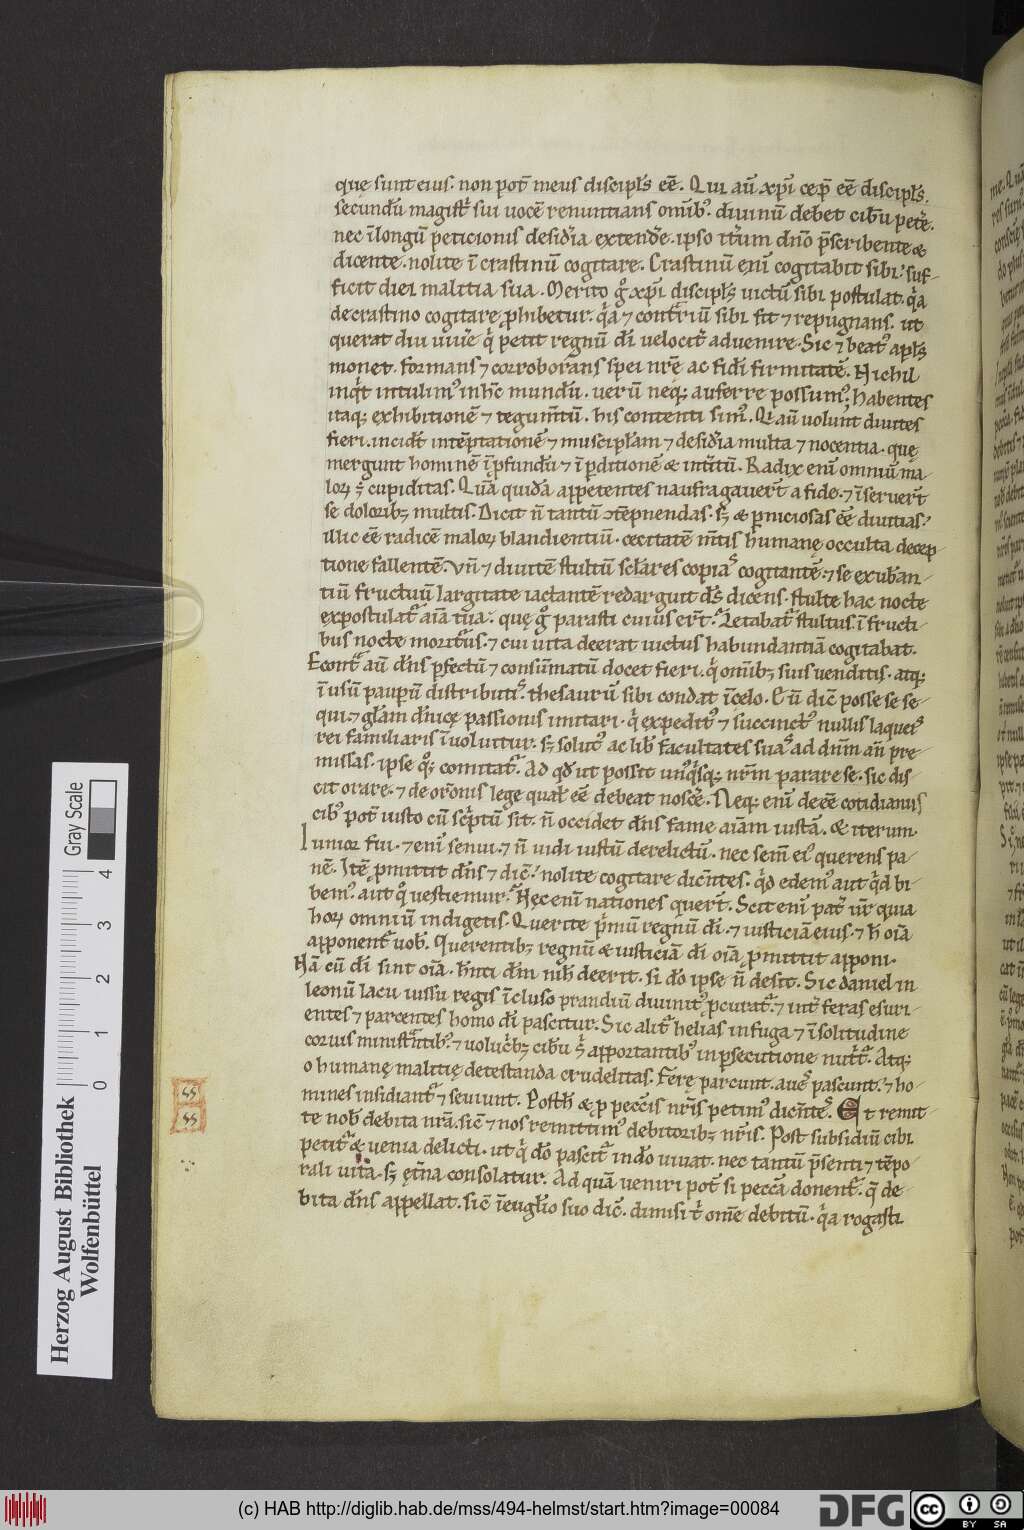 que sunt eius. non pot̄ meus discipl̄s eē. Qui aū xp̄i cep̄ eē discipl̄s.
secundū magistr̄ sui uocē renuntians omībꝰ. diuinū debet cibū petēr.
nec īlongū peticionis desid̄ia extendēr. ipso it̄um dn̄o p̄scribente &
dicente. nolite ī crastinū cogitare. Crastinū enī cogitabit sibi. suf-
ficit diei malitia sua. Merito gͦ xp̄i discipl̄s uictū sibi postulat. qͥa
decrastino cogitare ꝓhibetur. qͥa ⁊ contͣriū sibi fit ⁊ repugnans. ut
querat diu uiuēr qͥ petit regnū dī uelocit̄ aduenire. Sic ⁊ beatꝰ apl̄s
monet. formans ⁊ corroborans spei nr̄ę ac fidī firmitatē. Nichil
inqͥt intulimꝰ inhc̄ mundū. uerū neqꝫ auferre possumꝰ. habentes
itaqꝫ exhibitionē ⁊ tegum̄tū. his contenti simꝰ. Qͥ aū uolunt diuites
fieri. incidt̄ intēptationē ⁊ muscipl̄am ⁊ desid̄ia multa ⁊ nocentia. quę
mergunt hominē īꝓfundū ⁊ īꝑditionē & int̄itū. Radix enī omniū ma-
loꝝ ē cupiditas. Quā quidā appetentes naufragauert̄ a fide. ⁊ īseruert̄
se doloribꝫ multis. Dicit ñ tantū ꝯtēpnendas. sꝫ & ꝑniciosas eē diuitias.
illic eē radicē maloꝝ blandientiū. cecitatē m̄tis humanę occulta decep-
tione fallentē. Vn̄ ⁊ diuitē stultū scl̄ares copias cogitantē. ⁊ se exub̄an-
tiū fructuū largitate iactantē redarguit dī dicens. stulte hac nocte
expostulatͬ aīa tua. quę gͦ parasti cuius ert̄. Letabatͬ stultus īfructi-
bus nocte moritͬus. ⁊ cui uita deerat uictus habundantiā cogitabat.
Econtͣ aū dn̄s ꝑfectū ⁊ consūmatū docet fieri. qͥ omībꝫ suis uenditis. atqꝫ
īusū pauꝑū distributis. thesaurū sibi condat īcelo. Eū dic̄ posse se se-
qui. ⁊ gl̄am dn̄icę passionis imitari. qͥ expeditꝰ ⁊ succinctꝰ nullis laqueis
rei familiaris īuoluitur. sꝫ solutꝰ ac lib̄ facultates suas ad dn̄m an̄ pre-
missas. ipse qͦꝫ comitatͬ. Ad qd̄ ut possit unꝰqͥsqꝫ nr̄m parare se. sic dis-
cit orare. ⁊ de orōnis lege qual̄ eē debeat noscēr. Neqꝫ enī deeē cotidianus
cibꝰ pot̄ iusto cū scͥptū sit. ñ occidet dn̄s fame aīam iustā. & iterum.
Iunior fui. ⁊ enī senui. ⁊ ñ uidi iustū derelictū. nec sem̄ eiꝰ querens pa-
nē. Itē ꝓmittit dn̄s ⁊ dic̄. nolite cogitare dicn̄tes. qͥd edemꝰ aut qͥd bi-
bemꝰ. aut qͦ uestiemur. Hęc enī nationes quert̄. Scit enī pat̄ ur̄ quia
hoꝝ omniū indigetis. Querite pͥmū regnū dī. ⁊ iusticiā eius. ⁊ h̄ oīa
apponentͬ uob̄. Querentibꝫ regnū & iusticiā dī oīa ꝓmittit apponi.
Nā cū dī sint oīa. hn̄ti dm̄ nih̄ deerit. si dō ipse ñ desit. Sic daniel in
leonū lacu iussu regis īcluso prandiū diuinitꝰ ꝓcuratͬ. ⁊ int̄ feras esuri-
entes ⁊ parcentes homo dī pascitur. Sic alitͬ helias infuga ⁊ īsolitudine
coruis ministrͣntibꝰ. ⁊ uolucͥbꝫ cibū ē apportantibꝰ inꝑsecutione nutͥtͬ. Atqꝫ
o humanę malitię detestanda crudelitas. Ferę parcunt. aues pascunt. ⁊ ho-
mines insidiantͬ ⁊ seuiunt. Posth̄ & ꝓ pecc̄is nr̄is petimꝰ dicn̄tes. Et remit-
te nob̄ debita nr̄a. sic̄ ⁊ nos remittimꝰ debitoribꝫ nr̄is. Post subsidiū cibi
petitͬ & uenia delicti. ut qͥ dō pascitͬ indō uiuat. nec tantū p̄senti ⁊ tēpo-
rali uita. sꝫ ęt̄na consolatur. Ad quā ueniri pot̄ si pecc̄a donentͬ. q̄ de-
bita dn̄s appellat. sic̄ īeugl̄io suo dic̄. dimisi tͥ om̄e debitū. qͥa rogasti
Herzog August Bibliothek
Wolfenbüttel
Gray Scale
0 1 2 3 4
(c) HAB http://diglib.hab.de/mss/494-helmst/start.htm?image=00084
DFG
cc BY SA